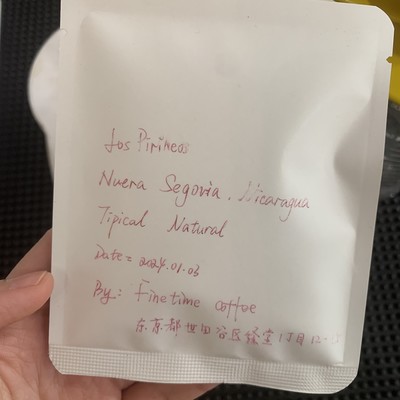 Los Pirineos
Nueva Segovia, Nicaragua
Tipical Natural
Date = 2024.01.03
By: Finetime coffee
东京都世田谷区经堂1丁目12-